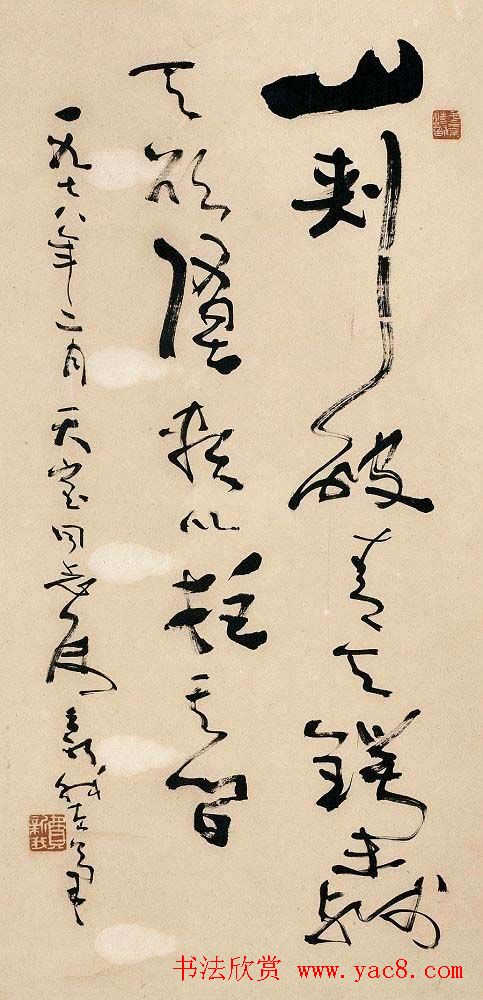 山刺破青天鍔未残
天欲堕赖以拄其間
一九七八年二月天宝同志属新我左筆
費新我
书法欣赏 www.yac8.com